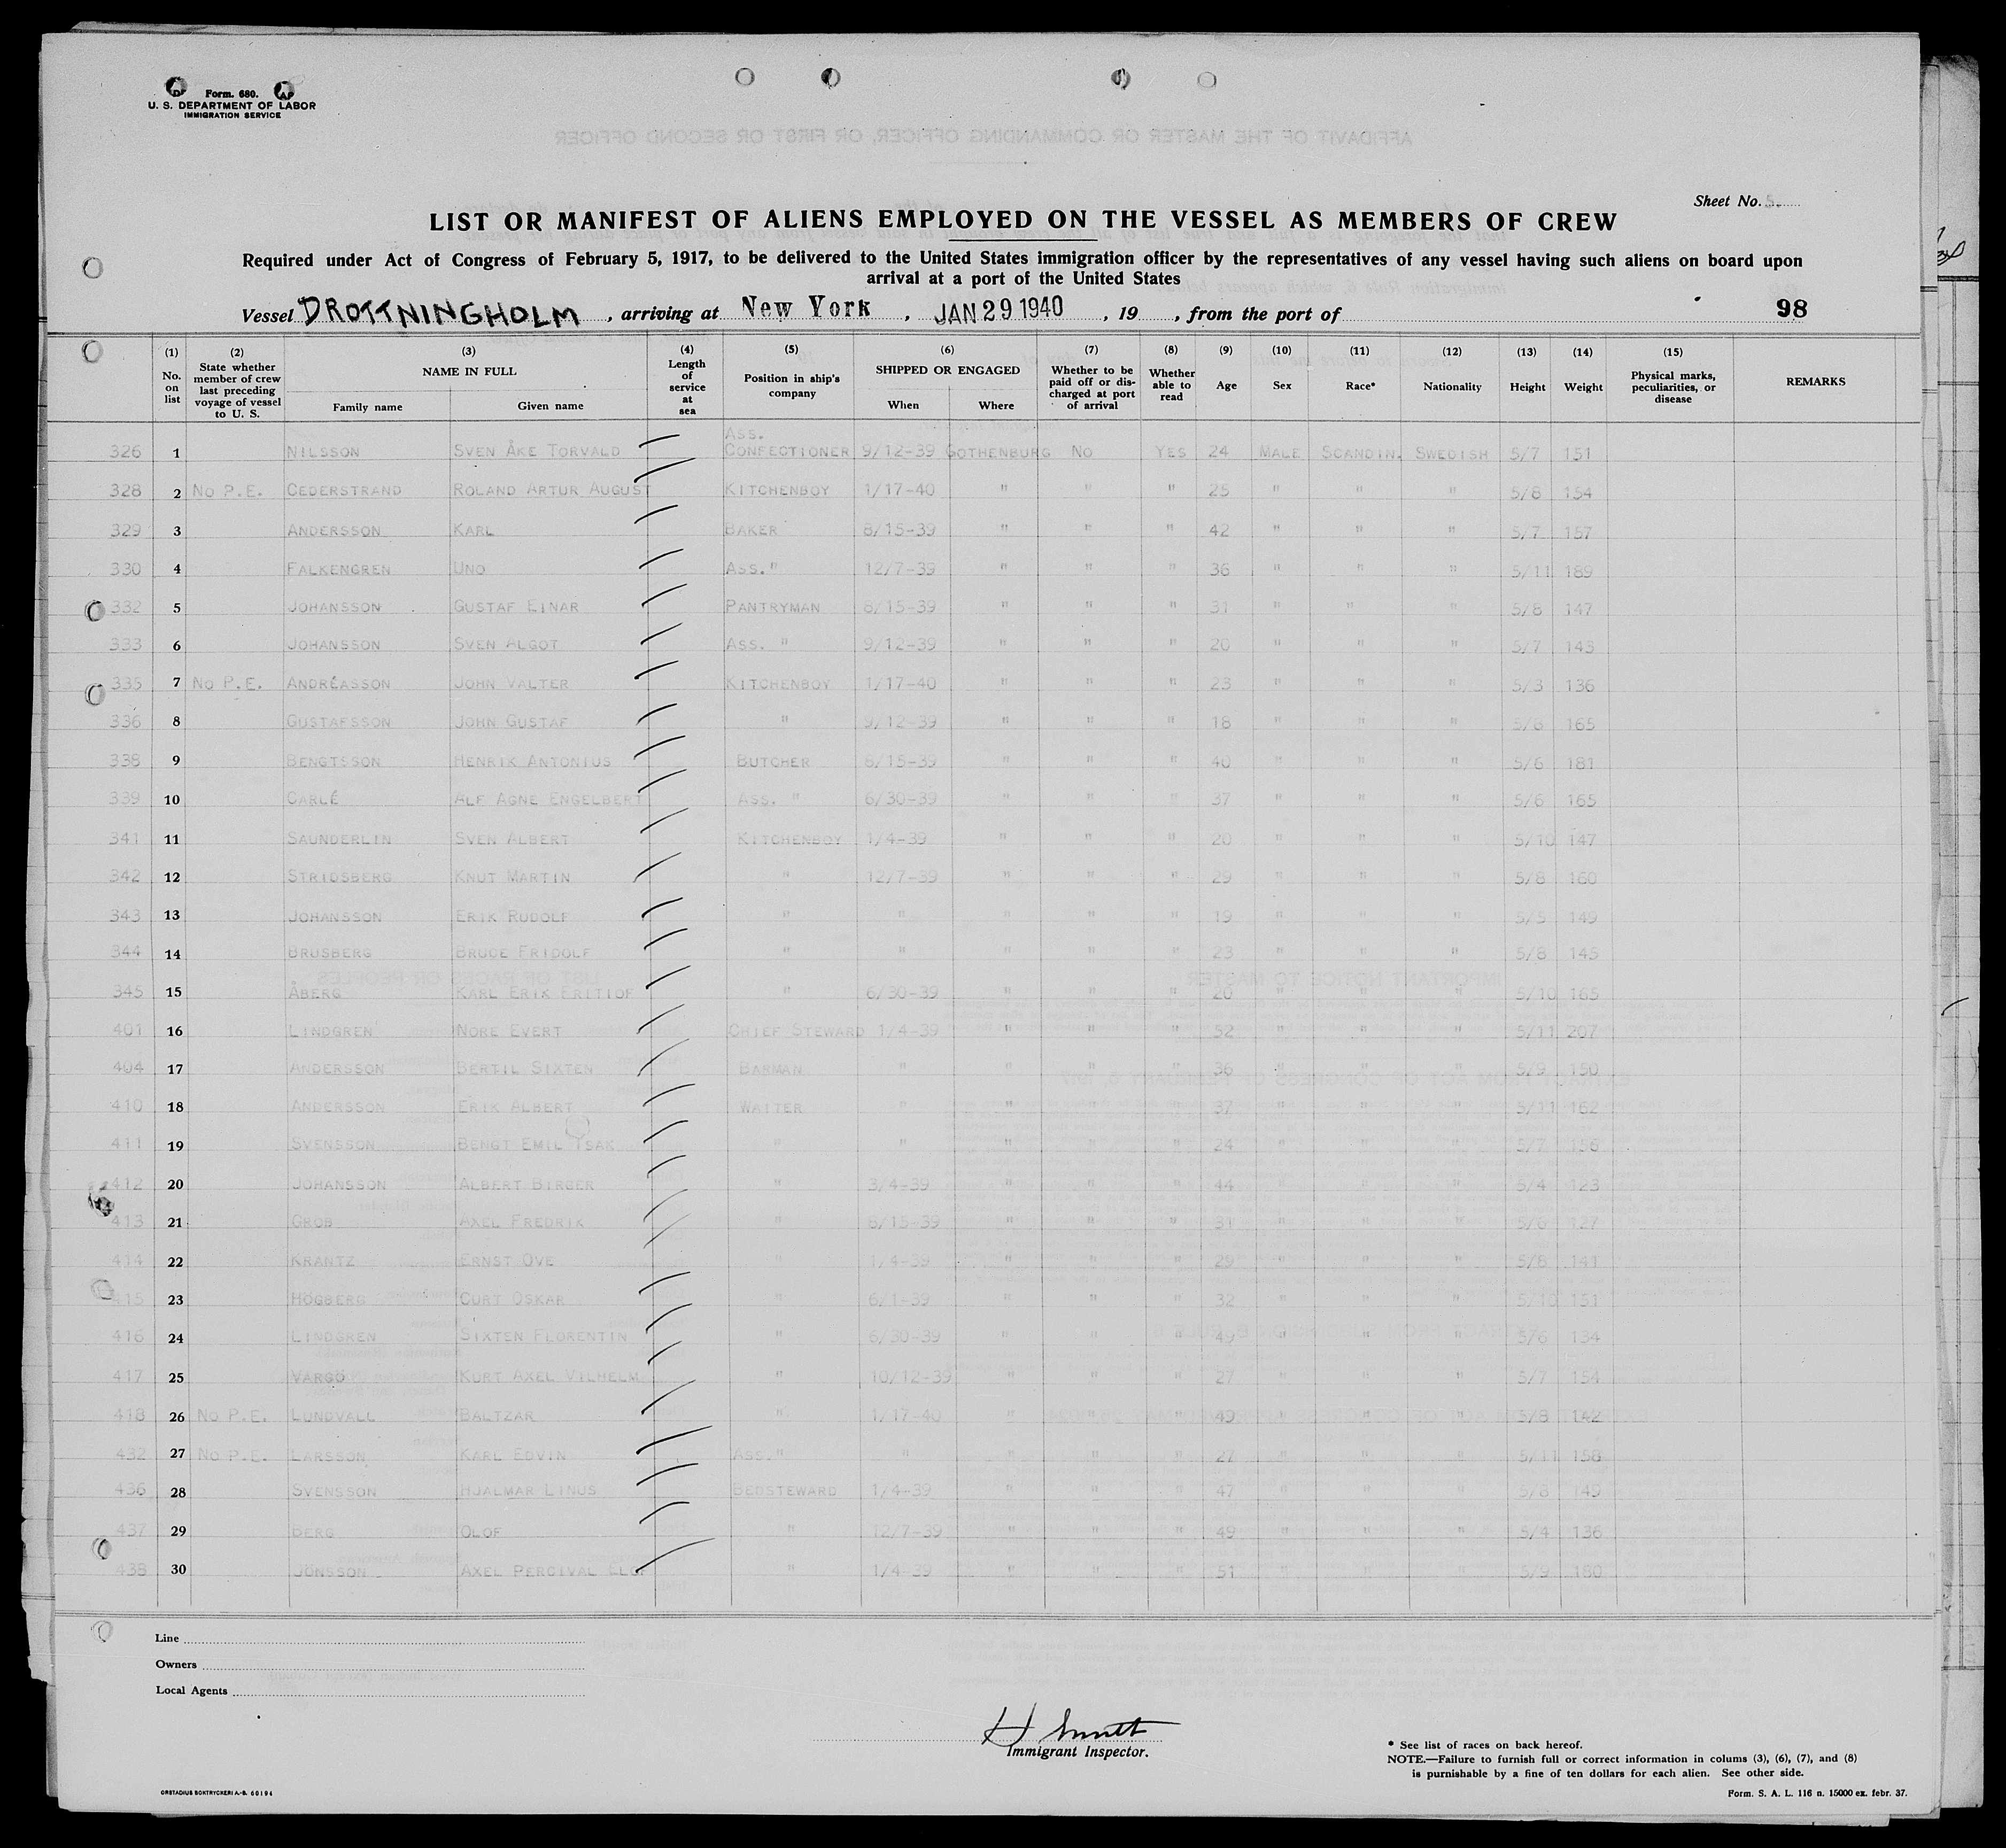 Form. 680.
U. S. DEPARTMENT OF LABOR
IMMIGRATION SERVICE
Sheet No. 5.
LIST OR MANIFEST OF ALIENS EMPLOYED ON THE VESSEL AS MEMBERS OF CREW
Required under Act of Congress of February 5, 1917, to be delivered to the United States immigration officer by the representatives of any vessel having such aliens on board upon
arrival at a port of the United States
Vessel DROTTNINGHOLM , arriving at New York , JAN 29 1940 , 19 , from the port of 98
(1) No. on list (2) State whether member of crew last preceding voyage of vessel to U. S. (3) NAME IN FULL Family name Given name (4) Length of service at sea (5) Position in ship's company (6) SHIPPED OR ENGAGED When Where (7) Whether to be paid off or discharged at port of arrival (8) Whether able to read (9) Age (10) Sex (11) Race* (12) Nationality (13) Height (14) Weight (15) Physical marks, peculiarities, or disease REMARKS
326 1 NILSSON SVEN ÅKE TORVALD ASS. CONFECTIONER 9/12-39 GOTHENBURG NO YES 24 MALE SCANDIN. SWEDISH 5/7 151
328 2 NO P.E. CEDERSTRAND ROLAND ARTUR AUGUST KITCHENBOY 1/17-40 " " " 25 " " " 5/8 154
329 3 ANDERSSON KARL BAKER 8/15-39 " " " 42 " " " 5/7 157
330 4 FALKENGREN UNO ASS. " 12/7-39 " " " 36 " " " 5/11 189
332 5 JOHANSSON GUSTAF EINAR PANTRYMAN 8/15-39 " " " 31 " " " 5/8 147
333 6 JOHANSSON SVEN ALGOT ASS. " 9/12-39 " " " 20 " " " 5/7 143
335 7 NO P.E. ANDRÉASSON JOHN VALTER KITCHENBOY 1/17-40 " " " 23 " " " 5/3 136
336 8 GUSTAFSSON JOHN GUSTAF " 9/12-39 " " " 18 " " " 5/6 165
338 9 BENGTSSON HENRIK ANTONIUS BUTCHER 8/15-39 " " " 40 " " " 5/6 181
339 10 CARLÉ ALF AGNE ENGELBERT ASS. " 6/30-39 " " " 37 " " " 5/6 165
341 11 SAUNDERLIN SVEN ALBERT KITCHENBOY 1/4-39 " " " 20 " " " 5/10 147
342 12 STRIDSBERG KNUT MARTIN " 12/7-39 " " " 29 " " " 5/8 160
343 13 JOHANSSON ERIK RUDOLF " " " " " 19 " " " 5/5 149
344 14 BRUSBERG BRUCE FRIDOLF " " " " " 23 " " " 5/8 145
345 15 ÅBERG KARL ERIK FRITIOF " 6/30-39 " " " 20 " " " 5/10 165
401 16 LINDGREN NORE EVERT CHIEF STEWARD 1/4-39 " " " 52 " " " 5/11 207
404 17 ANDERSSON BERTIL SIXTEN BARMAN " " " " 36 " " " 5/9 150
410 18 ANDERSSON ERIK ALBERT WAITER " " " " 37 " " " 5/11 162
411 19 SVENSSON BENGT EMIL YSAK " " " " " 24 " " " 5/7 156
412 20 JOHANSSON ALBERT BIRGER " 3/4-39 " " " 44 " " " 5/4 123
413 21 GROB AXEL FREDRIK " 8/15-39 " " " 31 " " " 5/6 127
414 22 KRANTZ ERNST OVE " 1/4-39 " " " 29 " " " 5/8 141
415 23 HÖGBERG CURT OSKAR " 6/1-39 " " " 32 " " " 5/10 151
416 24 LINDGREN SIXTEN FLORENTIN " 6/30-39 " " " 49 " " " 5/6 134
417 25 VARGÖ KURT AXEL VILHELM " 10/12-39 " " " 27 " " " 5/7 154
418 26 NO P.E. LUNDVALL BALTZAR " 1/17-40 " " " 49 " " " 5/8 142
432 27 NO P.E. LARSSON KARL EDVIN ASS. " " " " " 27 " " " 5/11 158
436 28 SVENSSON HJALMAR LINUS BEDSTEWARD 1/4-39 " " " 47 " " " 5/8 149
437 29 BERG OLOF " 12/7-39 " " " 49 " " " 5/4 136
438 30 JÖNSSON AXEL PERCIVAL " 1/4-39 " " " 51 " " " 5/9 180
Line
Owners
Local Agents
H Smith
Immigrant Inspector.
* See list of races on back hereof.
NOTE.—Failure to furnish full or correct information in colums (3), (6), (7), and (8)
is punishable by a fine of ten dollars for each alien. See other side.
ORSTADIUS BOKTRYCKERI A.-B. 60194
Form. S. A. L. 116 n. 15000 ex. febr. 37.